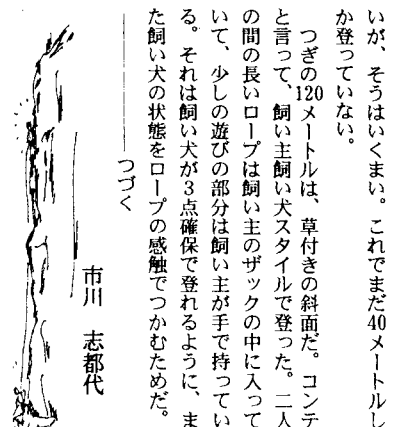 いが、そうはいくまい。これでまだ40メートルし
か登っていない。
つぎの120メートルは、草付きの斜面だ。コンテ
と言って、飼い主飼い犬スタイルで登った。二人
の間の長いロープは飼い主のザックの中に入って
いて、少しの遊びの部分は飼い主が手で持ってい
る。それは飼い犬が3点確保で登れるように、ま
た飼い犬の状態をロープの感触でつかむためだ。
つづく
市川 志都代